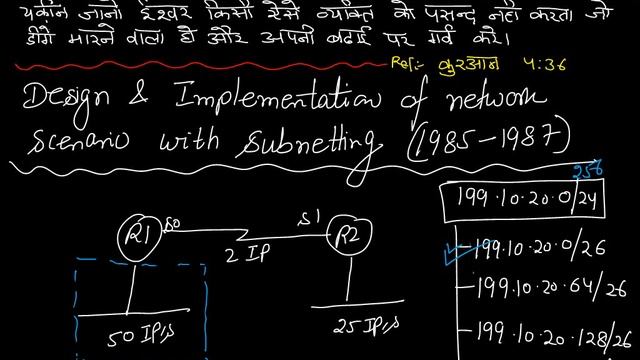 यकीन जानो ईश्वर किसी ऐसे व्यक्ति को पसन्द नही करता जो
डींगे मारने वाला हो और अपनी बढाई पर गर्व करे।
Ref:- कुरआन 4:36
Design & Implementation of network
scenario with subnetting (1985-1987)
256
199.10.20.0/24
R1 S0
S1 R2
2 IP
199.10.20.0/26
199.10.20.64/26
50 IP,s
25 IP,s
199.10.20.128/26